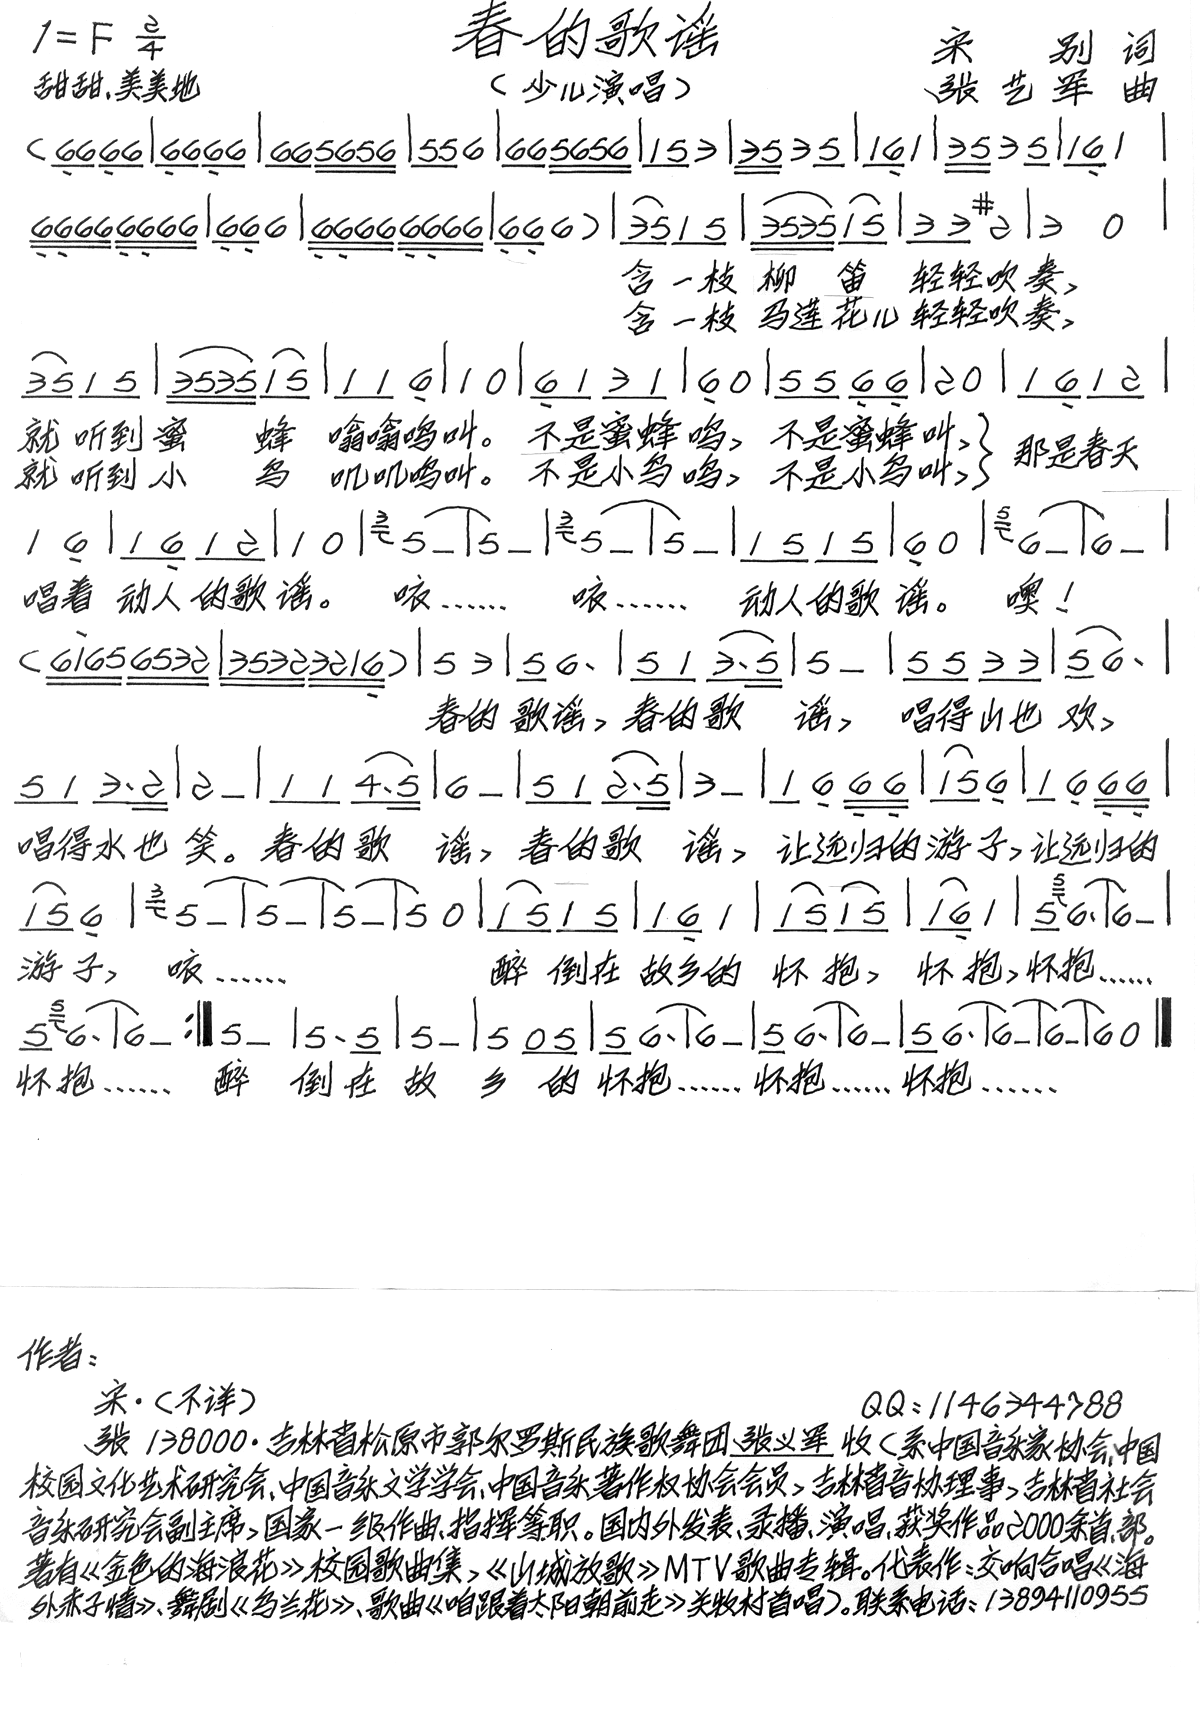 1=F 2/4 春的歌谣 宋 别 词
甜甜、美美地 (少儿演唱) 张艺军 曲
(6666|6666|665656|556|665656|153|3535|161|3535|161|
66666666|666|66666666|666)|3515|353515|33#2|3 0|
含一枝柳笛 轻轻吹奏,
含一枝马莲花儿轻轻吹奏,
3515|353515|116|10|6131|60|5566|20|1612|
就听到蜜 蜂 嗡嗡鸣叫。不是蜜蜂鸣,不是蜜蜂叫,}那是春天
就听到小 鸟 叽叽鸣叫。不是小鸟鸣,不是小鸟叫,}
16|1612|10|35–|5–|35–|5–|1515|60|56–|6–|
唱着 动人的歌谣。 咳…… 咳…… 动人的歌谣。 噢!
(61656532|35323216)|53|56·|513·5|5–|5533|56·|
春的歌谣,春的歌 谣, 唱得山也欢,
513·2|2–|114·5|6–|512·5|3–|1666|156|1666|
唱得水也笑。春的歌 谣,春的歌 谣,让远归的游子,让远归的
156|35–|5–|5–|50|1515|161|1515|161|556·|6–|
游子, 咳…… 醉倒在故乡的怀抱,怀抱,怀抱……
556·|6–:‖5–|5·5|5–|505|56·|6–|56·|6–|56·|6–|6–|60‖
怀抱…… 醉 倒在故 乡 的怀抱……怀抱……怀抱……
作者:
宋·(不详) QQ:1146344788
张 138000·吉林省松原市郭尔罗斯民族歌舞团 张义军 收(系中国音乐家协会、中国
校园文化艺术研究会、中国音乐文学学会、中国音乐著作权协会会员,吉林省音协理事,吉林省社会
音乐研究会副主席,国家一级作曲、指挥等职。国内外发表、录播、演唱、获奖作品2000余首、部。
著有《金色的海浪花》校园歌曲集,《山城放歌》MTV歌曲专辑。代表作:交响合唱《海
外赤子情》、舞剧《乌兰花》、歌曲《咱跟着太阳朝前走》关牧村首唱)。联系电话:13894110955